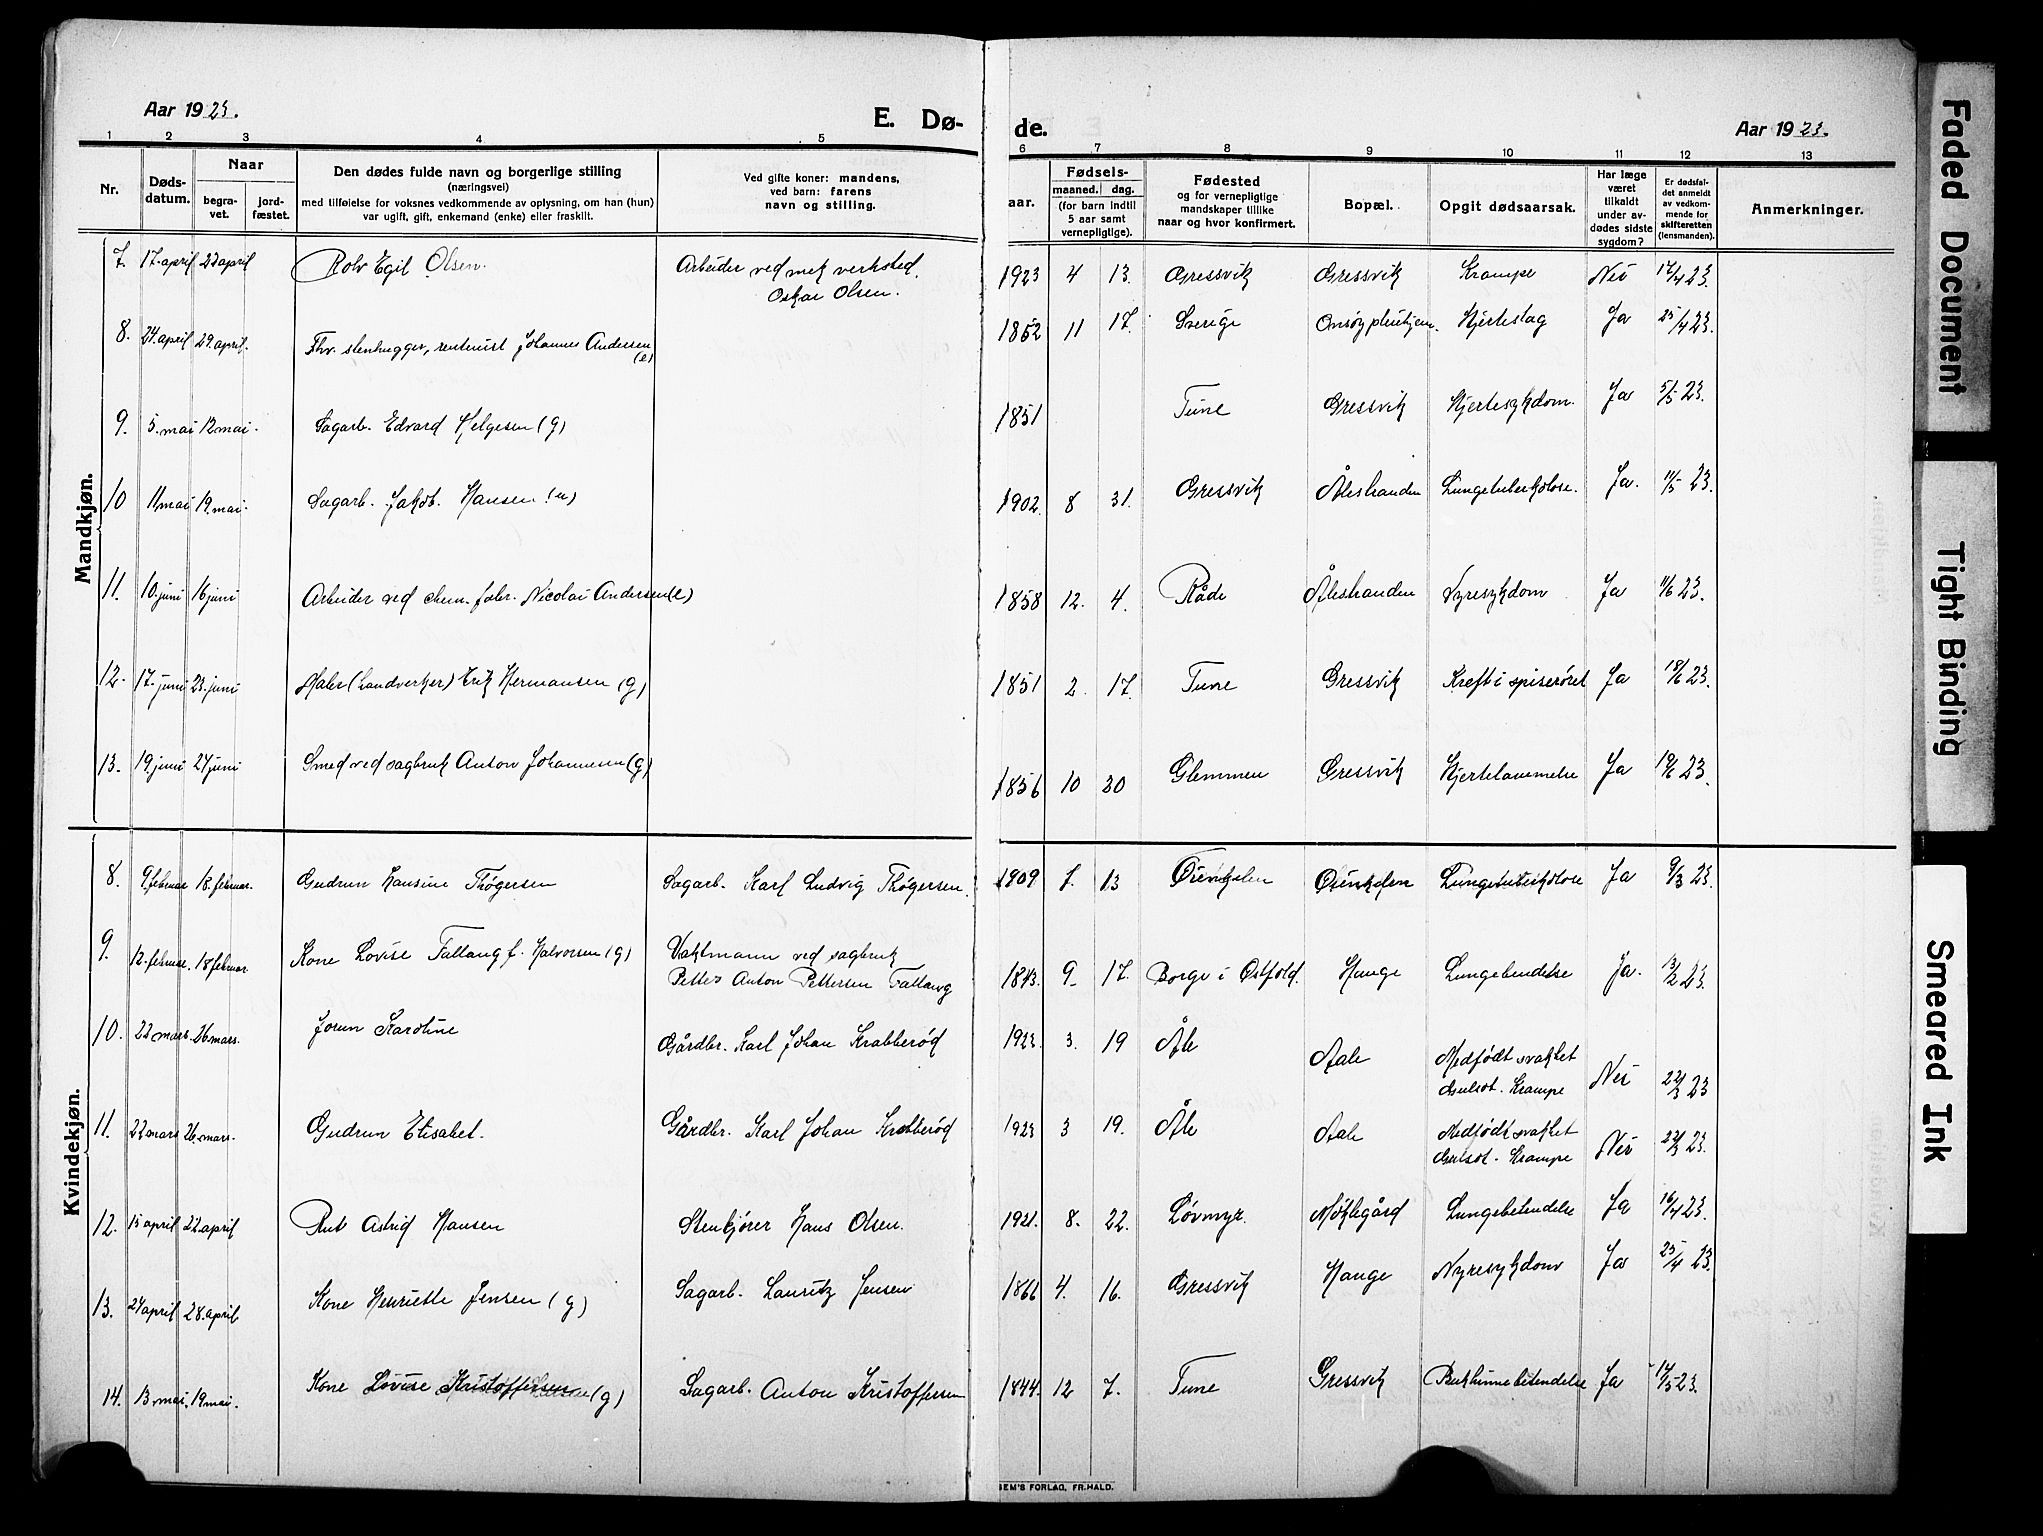 Aar 1923.
E. Dø-
1 2 3 4 5
Nr.
Døds-
datum.
Naar
begra-
vet.
jord-
fæstet.
Den dødes fulde navn og borgerlige stilling
(næringsvei)
med tilføielse for voksnes vedkommende av oplysning, om han (hun)
var ugift, gift, enkemand (enke) eller fraskilt.
Ved gifte koner: mandens,
ved barn: farens
navn og stilling.
Mandkjøn.
7. 17. april 23 april Rolv Egil Olsen. Arbeider ved mek verksted.
Oskar Olsen.
8. 24. april 29. april. Fhv. stenhugger, rentenist Johannes Andersen
(e)
9. 5. mai 12 mai. Sagarb. Edvard Helgesen (g)
10 11. mai 19. mai. Sagarb. Jakob. Hansen (u)
11. 10. juni 16 juni Arbeider ved chem. fabr. Nicolai Andersen (e)
12. 17. juni 23. juni Maler (handverker) Erik Hermansen (g)
13. 19. juni 24 juni Smed ved sagbruk Anton Johannesen (g)
Kvindekjøn.
8. 9. februar 18. februar. Gudrun Hansine Thøgersen Sagarb. Karl Ludvig Thøgersen.
9. 12. februar. 18 februar. Kone Lovise Fallang f. Halvorsen (g) Vaktmann ved sagbruk
Petter Anton Pettersen Fallang
10. 22 mars. 26 mars. Jorun Karoline Gårdbr. Karl Johan Krabberød
11. 22 mars 26. mars. Gudrun Elisabet. Gårdbr. Karl Johan Krabberød
12. 15 april 22. april Rut Astrid Hansen Stenkjører Hans Olsen.
13. 24 april 28. april Kone Henriette Jensen (g) Sagarb. Lauritz Jensen
14. 13. mai. 19 mai. Kone Lovise Kristoffersen (g) Sagarb. Anton Kristoffersen
de. Aar 1923.
6 7 8 9 10 11 12 13
aar.
Fødsels-
maaned. dag.
(for barn indtil
5 aar samt
vernepligtige).
Fødested
og for vernepligtige
mandskaper tillike
naar og hvor konfirmert.
Bopæl.
Opgit dødsaarsak.
Har læge
været
tilkaldt
under av-
dødes sidste
sygdom?
Er dødsfal-
det anmeldt
av vedkom-
mende for
skifteretten
(lensmanden).
Anmerkninger.
1923 4 13. Gressvik Gressvik Krampe Nei 17/4 23.
1852 11 17. Sverige Onsøy pleiehjem. Hjerteslag Ja 25/4 23.
1851 Tune Gressvik Hjertesykdom. Ja 5/5 23.
1902. 8 31. Gressvik Ålestranden Lungetuberkolose. Ja. 11/5 23.
1858 12. 4. Råde Ålestranden Nyresykdom Ja 11/6 23.
1851 2. 17. Tune Gressvik Kreft i spiserøret Ja 18/6 23.
1856 10 30 Glemmen Gressvik Hjertelammelse Ja 19/6 23.
1909 7. 13 Ørevikelen Ørevikelen Lungetuberkolose Ja 9/3 23.
1843. 9 17. Borge i Østfold. Hauge Lungebendelse Ja. 13/2 23.
1923. 3. 19 Åle Aale Medfødt svakhet
Gulsot. Krampe Nei 22/3 23
1923 3 19. Åle Aale Medfødt svakhet
Gulsot. Krampe Nei 22/3 23.
1921. 8. 22. Løvmyr. Møklegård Lungebetendelse Ja 16/4 23.
1866 4. 16. Gressvik Hauge Nyresykdom Ja 25/4 23.
1844. 12 7. Tune Gressvik Bukhinnebetendelse Ja 14/5 23.
SEM'S FORLAG, FR.HALD.
Faded Document
Tight Binding
Smeared Ink